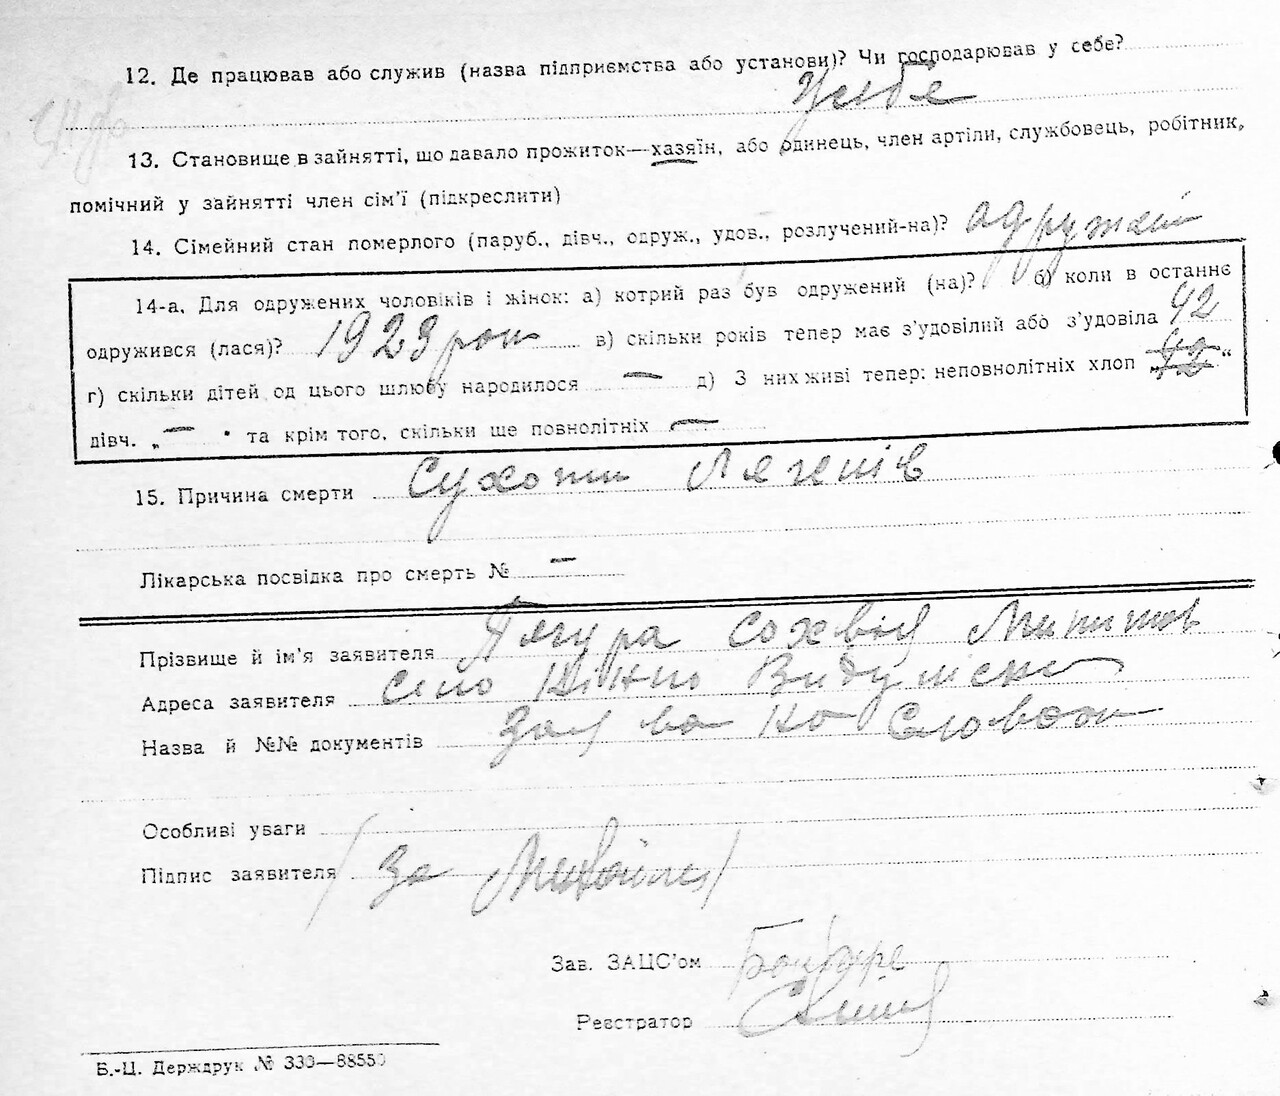 12. Де працював або служив (назва підприємства або установи)? Чи господарював у себе?
У себе
13. Становище в зайнятті, що давало прожиток—хазяїн, або одинець, член артіли, службовець, робітник,
помічний у зайнятті член сім'ї (підкреслити)
14. Сімейний стан померлого (паруб., дівч., одруж., удов., розлучений-на)?
14-а. Для одружених чоловіків і жінок: а) котрий раз був одружений (на)? б) коли в останнє
одружився (лася)? 1923 рок в) скільки років тепер має з'удовілий або з'удовіла 42
г) скільки дітей од цього шлюбу народилося — д) З них живі тепер: неповнолітніх хлоп „ “
дівч. „— “ та крім того, скільки ще повнолітніх —
15. Причина смерти Сухоти Лягенів
Лікарська посвідка про смерть № —
Прізвище й ім'я заявителя
Адреса заявителя Село
Назва й №№ документів Заява на Словах
Особливі уваги
Підпис заявителя За
Зав. ЗАЦС'ом
Реєстратор
Б.-Ц. Держдрук № 330—88550